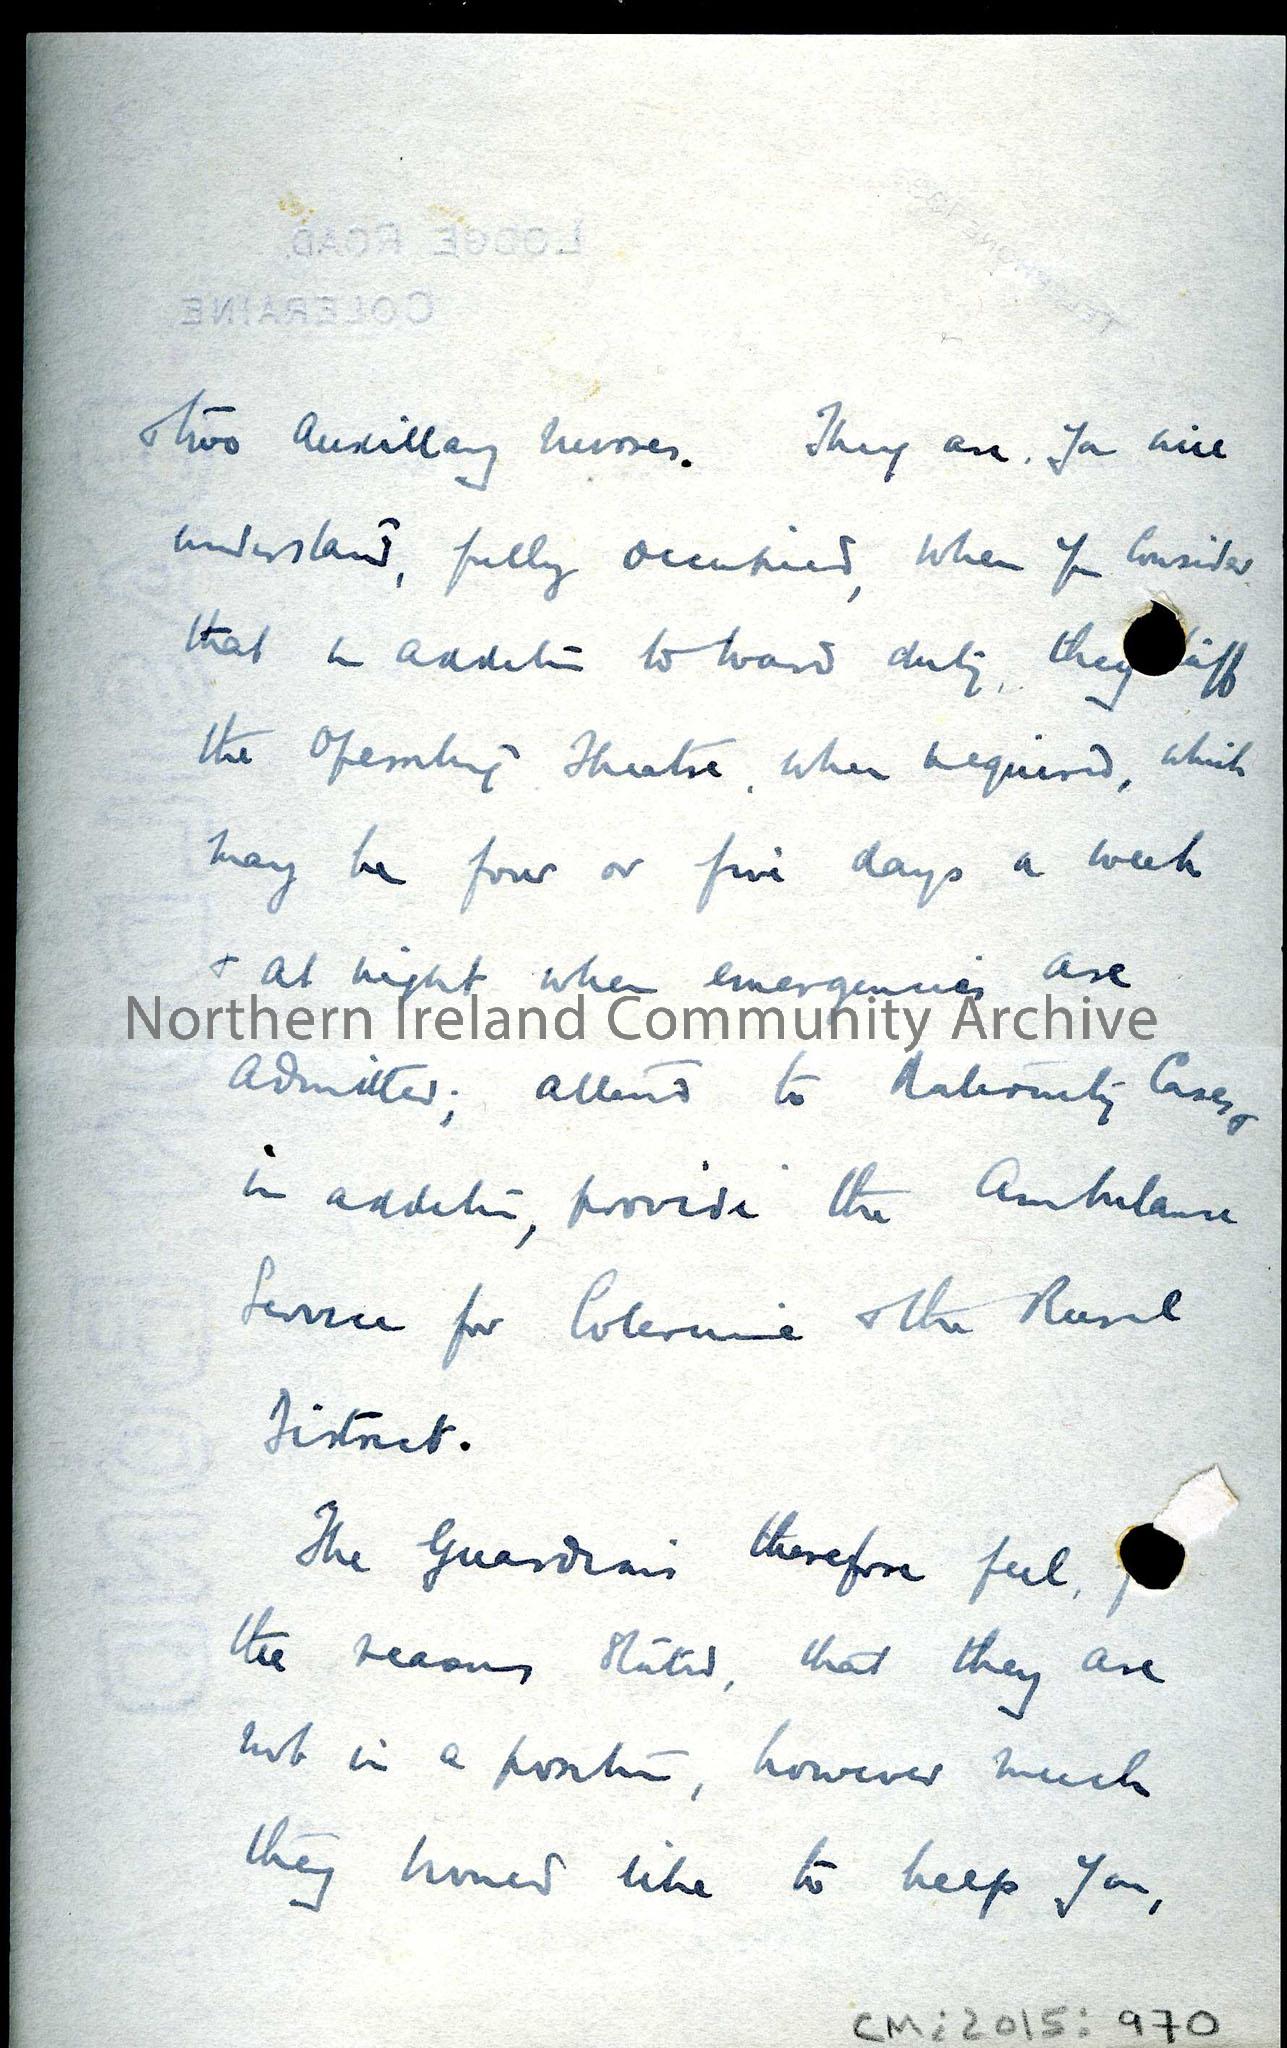 & two Auxillary nurses. They are, you will
understand, fully occupied, when you consider
that in addition to ward duty, they
the Operating Theatre, when required, which
may be four or five days a week
& at night when emergencies are
Northern Ireland Community Archive
admitted; attend to Maternity Cases, &
in addition, provide the Ambulance
Service for Coleraine & the Rural
District.
The Guardians therefore feel,
the reasons stated, that they are
not in a position, however much
they would like to help you,
CM:2015:970
LODGE ROAD
COLERAINE